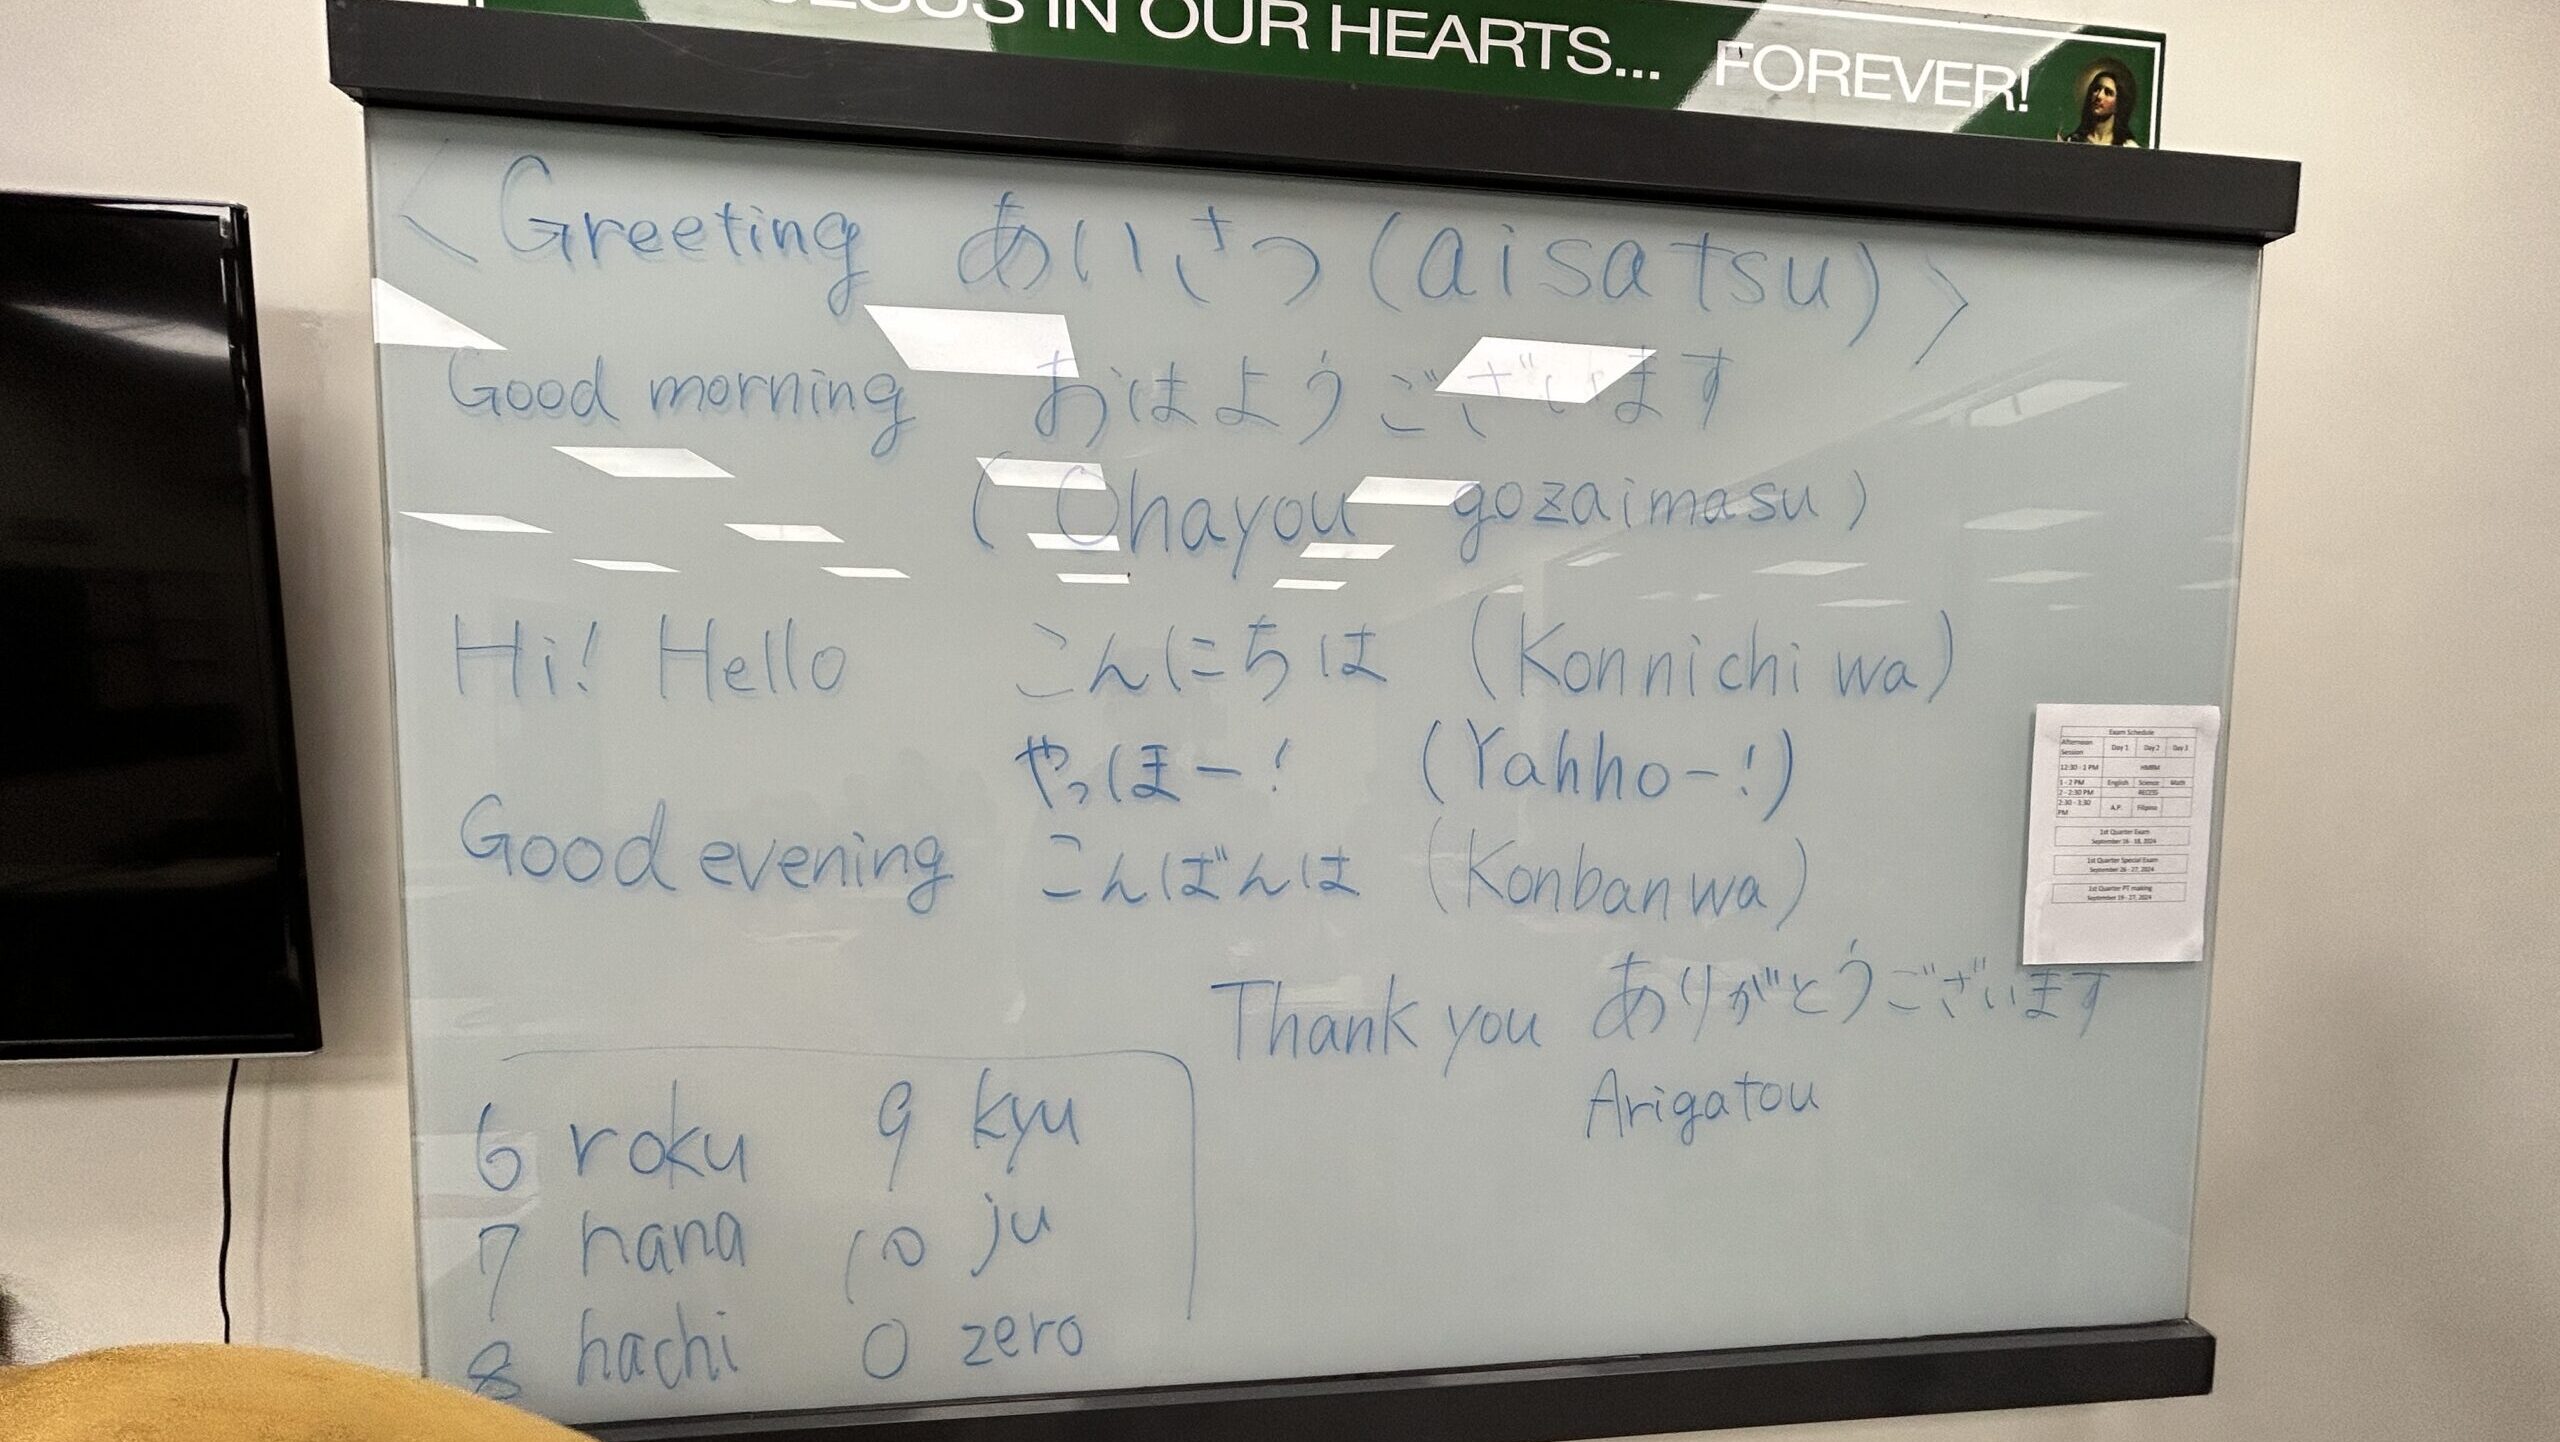 JESUS IN OUR HEARTS... FOREVER!
< Greeting あいさつ (aisatsu) >
Good morning おはようございます
(Ohayou gozaimasu)
Hi! Hello こんにちは (Konnichi wa)
やっほー! (Yahho-!)
Good evening こんばんは (Konban wa)
Thank you ありがとうございます
Arigatou
6 roku 9 kyu
7 nana 10 ju
8 hachi 0 zero
Exam Schedule
Afternoon Session Day 1 Day 2 Day 3
12:30 - 1 PM HMRM
1 - 2 PM English Science Math
2 - 2:30 PM RECESS
2:30 - 3:30 PM A.P. Filipino
1st Quarter Exam
September 16 - 18, 2024
1st Quarter Special Exam
September 26 - 27, 2024
1st Quarter PT making
September 19 - 27, 2024